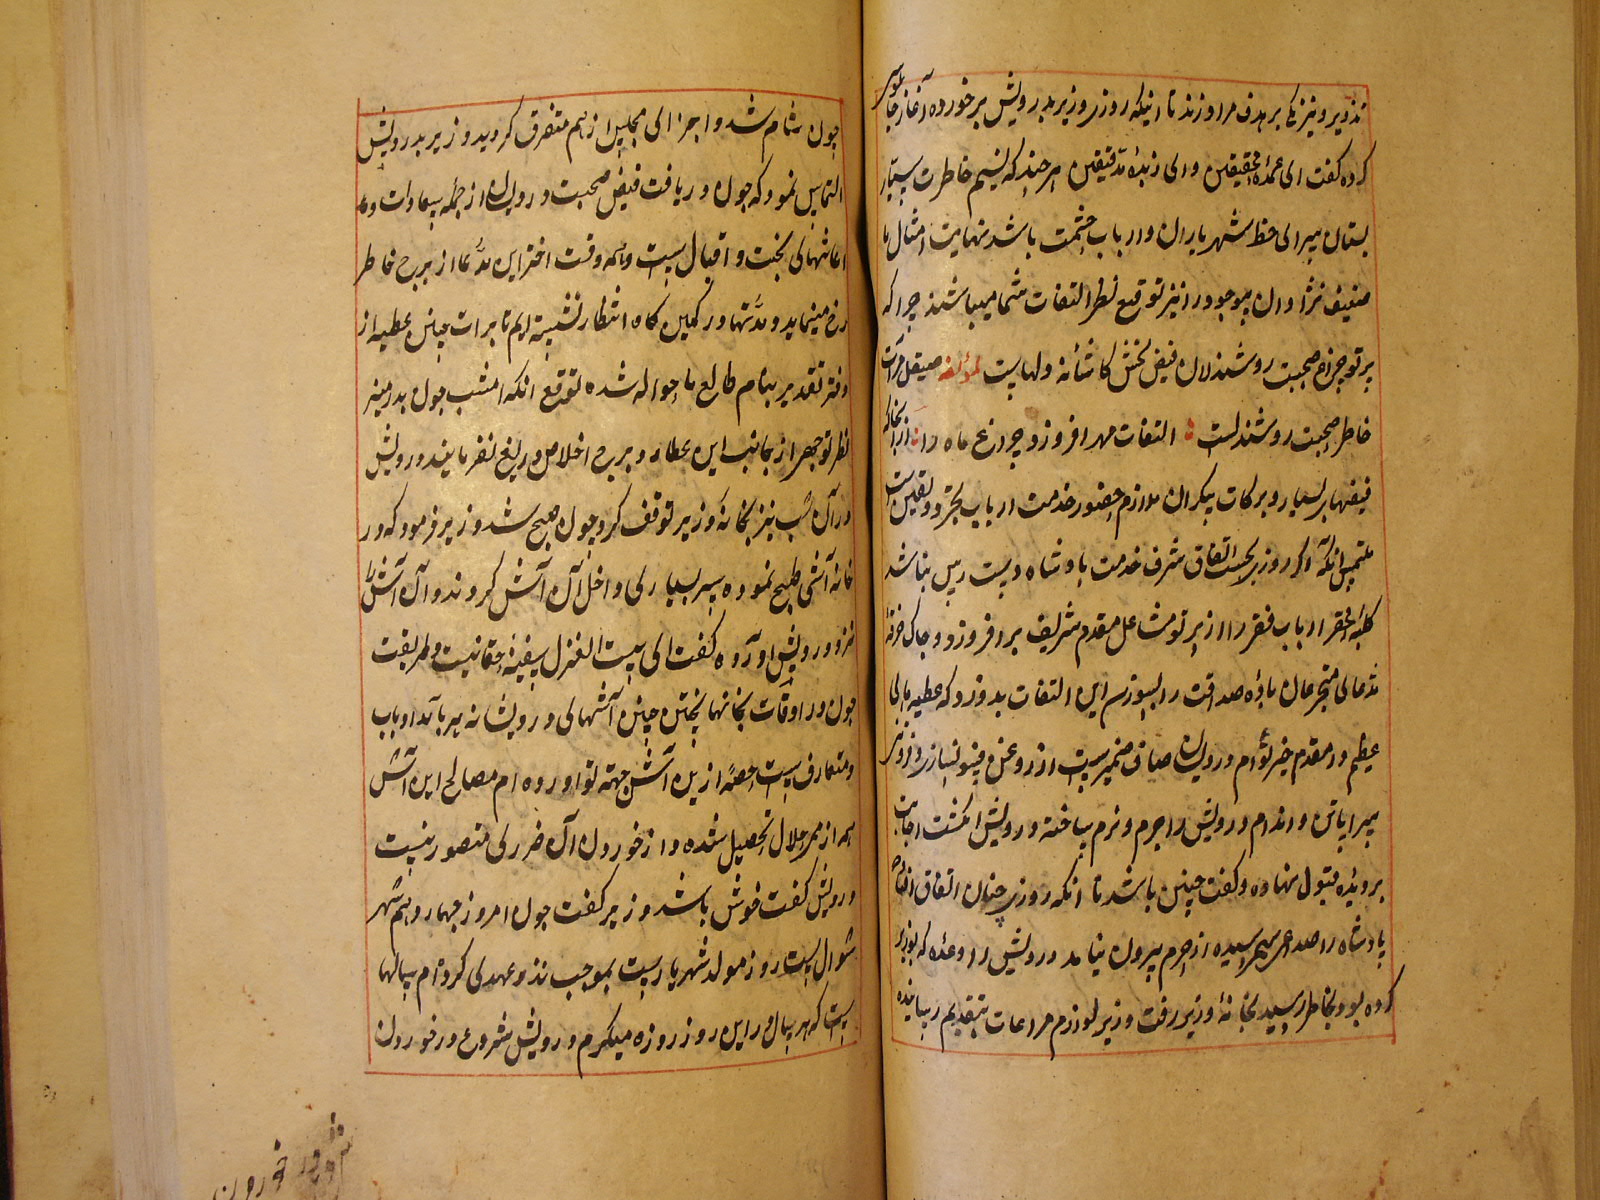 تذویر و نیرنگی بر هدف مراد زند تا اینکه روزی وزیر بدرویش برخورده آغاز چاپلوسی
کرده گفت ای عمدهٔ محققین و ای زبدهٔ مدققین هر چند که نسیم خاطرت
بستان پیرای حظ شهریاران و ارباب حشمت باشد نهایت امثال ما
ضعیف نژادان موجود را نیز توقع نظر التفات شما میباشد چرا که
پرتو چراغ صحبت روشندلان فیض بخش کاشانهٔ دلهاست لمؤلفه صیقل مرآت
خاطر صحبت روشندلست التفات مهر افروزد چراغ ماه را از آنجا که
فیضهای بسیار و برکات بیکران ملازم حضور خدمت ارباب تجرد و یقین است
ملتمس آنکه اگر روزی بحسب اتفاق شرف خدمت پادشاه دست رس نباشد
کلبهٔ محقر ارباب فقر را از پرتو مشاعل مقدم شریف برافروزد و چاک خرقهٔ
مدعای متجرعان بادهٔ صداقت را بسوزن این التفات بدوزد که عطیهٔ
عظیم در مقدم خیر توأم درویشان صافی ضمیر است از روغن
سراپای و اندام درویش را چرم و نرم ساخته درویش انگشت اجابت
بر دیدهٔ قبول نهاده و گفت چنین باشد تا آنکه روزی چنان اتفاق افتاد
پادشاه را صداعی بهم رسیده از حرم بیرون نیامد درویش را وعده که بوزیر
کرده بود بخاطر رسید بخانهٔ وزیر رفت وزیر لوازم مراعات بتقدیم رسانیده
چون شام شد و اجزای مجلس از هم متفرق گردید وزیر بدرویش
التماس نمود که چون دریافت فیض صحبت درویشان از جمله سعادات و
بخت و اقبال است و همه وقت اختر این مدعا از برج خاطر
رخ مینماید و مدتها در کمین گاه انتظار نشسته ایم تا برات چنین عطیه از
دفتر تقدیر بنام طالع ما حواله شده توقع آنکه امشب چون بدر منیر
نظر توجه از جانب این عطارد برج اخلاص دریغ نفرمایند درویش
در آن شب نیز بخانهٔ وزیر توقف کرد چون صبح شد وزیر فرمود که در
خانه آشی طبخ نموده سیر بسیاری داخل آن آش کردند و آن آش را
نزد درویش آورده گفت ای بیت الغزل سفینهٔ حقانیت و طریقت
چون در اوقات بخانها پختن چنین آشهای درویشانه هر بامداد باب
و متعارف است حصهٔ از این آش جهت تو آورده ام مصالح این آش
همه از ممر حلال تحصیل شده و از خوردن آن ضرری متصور نیست
درویش گفت خوش باشد وزیر گفت چون امروز چهاردهم شهر
شوال است روز مولد شهریار است بموجب نذر و عهدی که کرده ام سالها
است که هر سال در این روز روزه میگیرم درویش شروع در خوردن